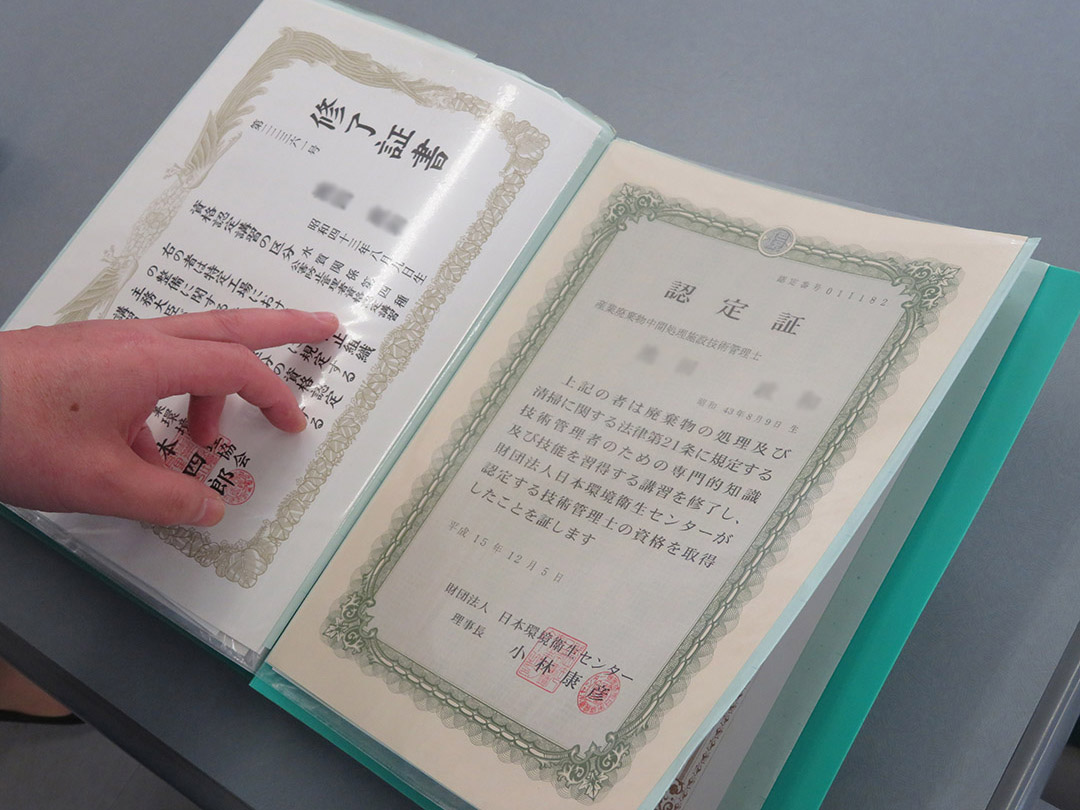 修了証書
第一二三六一号
昭和四十三年八月九日生
資格認定講習の区分 水質関係第四種
公害防止管理者資格認定講習
右の者は特定工場におけ
止組織
の整備に関する
規定する
主務大臣
資格認定
講
する
協会
本四郎
認定番号011182
認定証
産業廃棄物中間処理施設技術管理士
昭和 43年8月9日 生
上記の者は廃棄物の処理及び
清掃に関する法律第21条に規定する
技術管理者のための専門的知識
及び技能を習得する講習を修了し、
財団法人日本環境衛生センターが
認定する技術管理士の資格を取得
したことを証します
平成 15年 12月 5日
財団法人 日本環境衛生センター
理事長 小林康彦